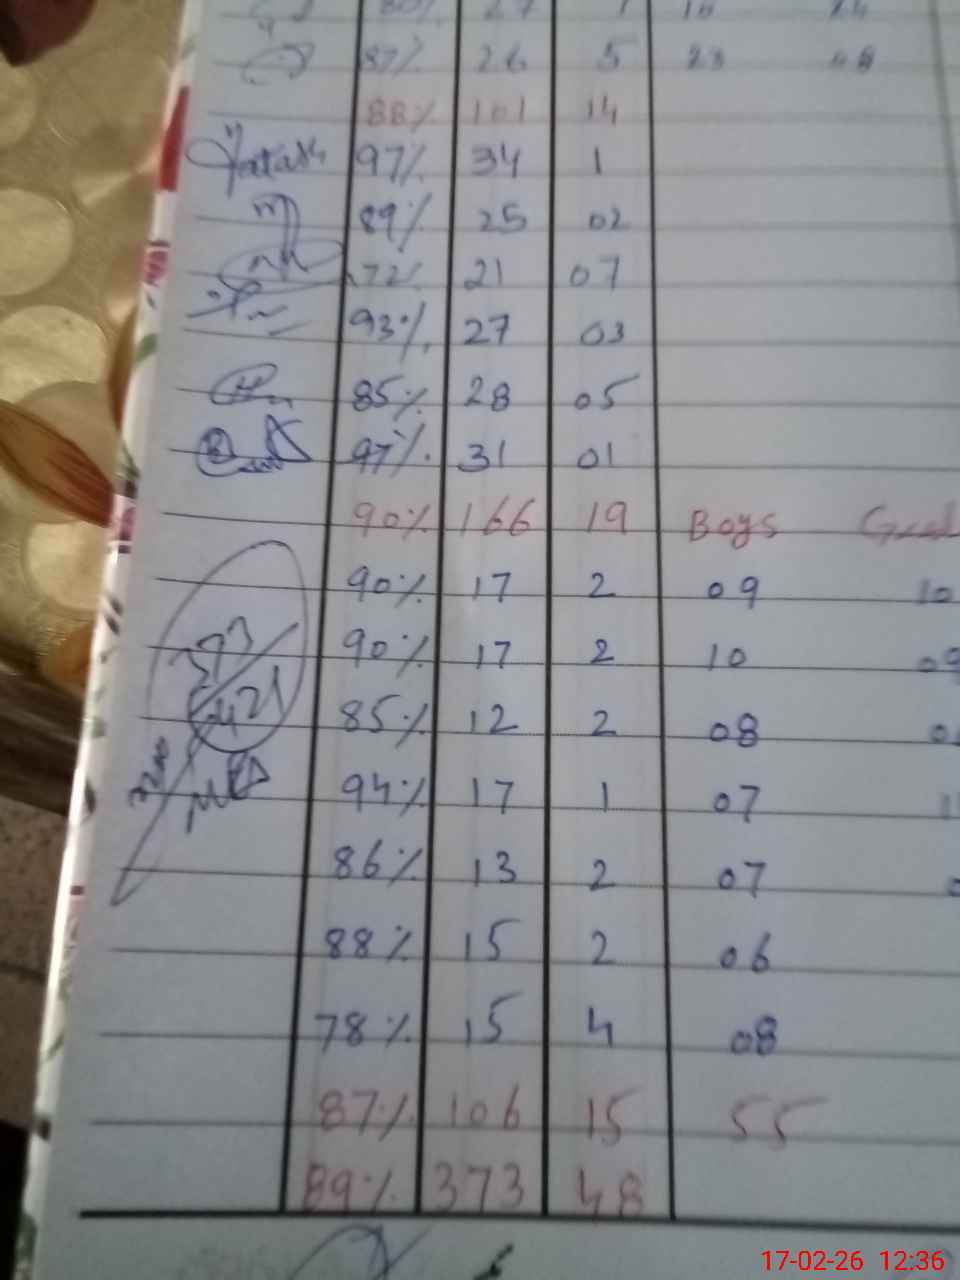 80% 27 1 10
87% 26 5 23 08
88% 101 14
97% 34 1
89% 25 02
72% 21 07
93% 27 03
85% 28 05
97% 31 01
90% 166 19 Boys
90% 17 2 09 10
90% 17 2 10 09
85% 12 2 08
94% 17 1 07
86% 13 2 07
88% 15 2 06
78% 15 4 08
87% 106 15 55
89% 373 48
373
421
17-02-26 12:36